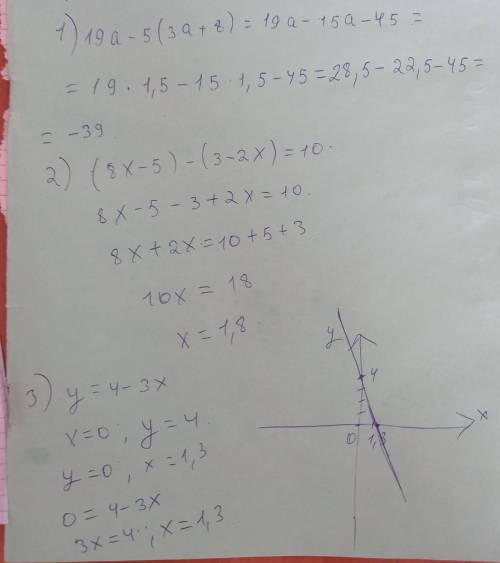 1) 19a-5(3a+8) = 19a-15a-45 =
= 19 · 1,5 - 15 · 1,5 - 45 = 28,5 - 22,5 - 45 =
= -39
2) (8x-5) - (3-2x) = 10.
8x - 5 - 3 + 2x = 10.
8x + 2x = 10 + 5 + 3
10x = 18
x = 1,8
3) y = 4-3x
x=0; y=4.
y=0, x=1,3
0 = 4-3x
3x=4; x=1,3
y
4
x
0 1,3